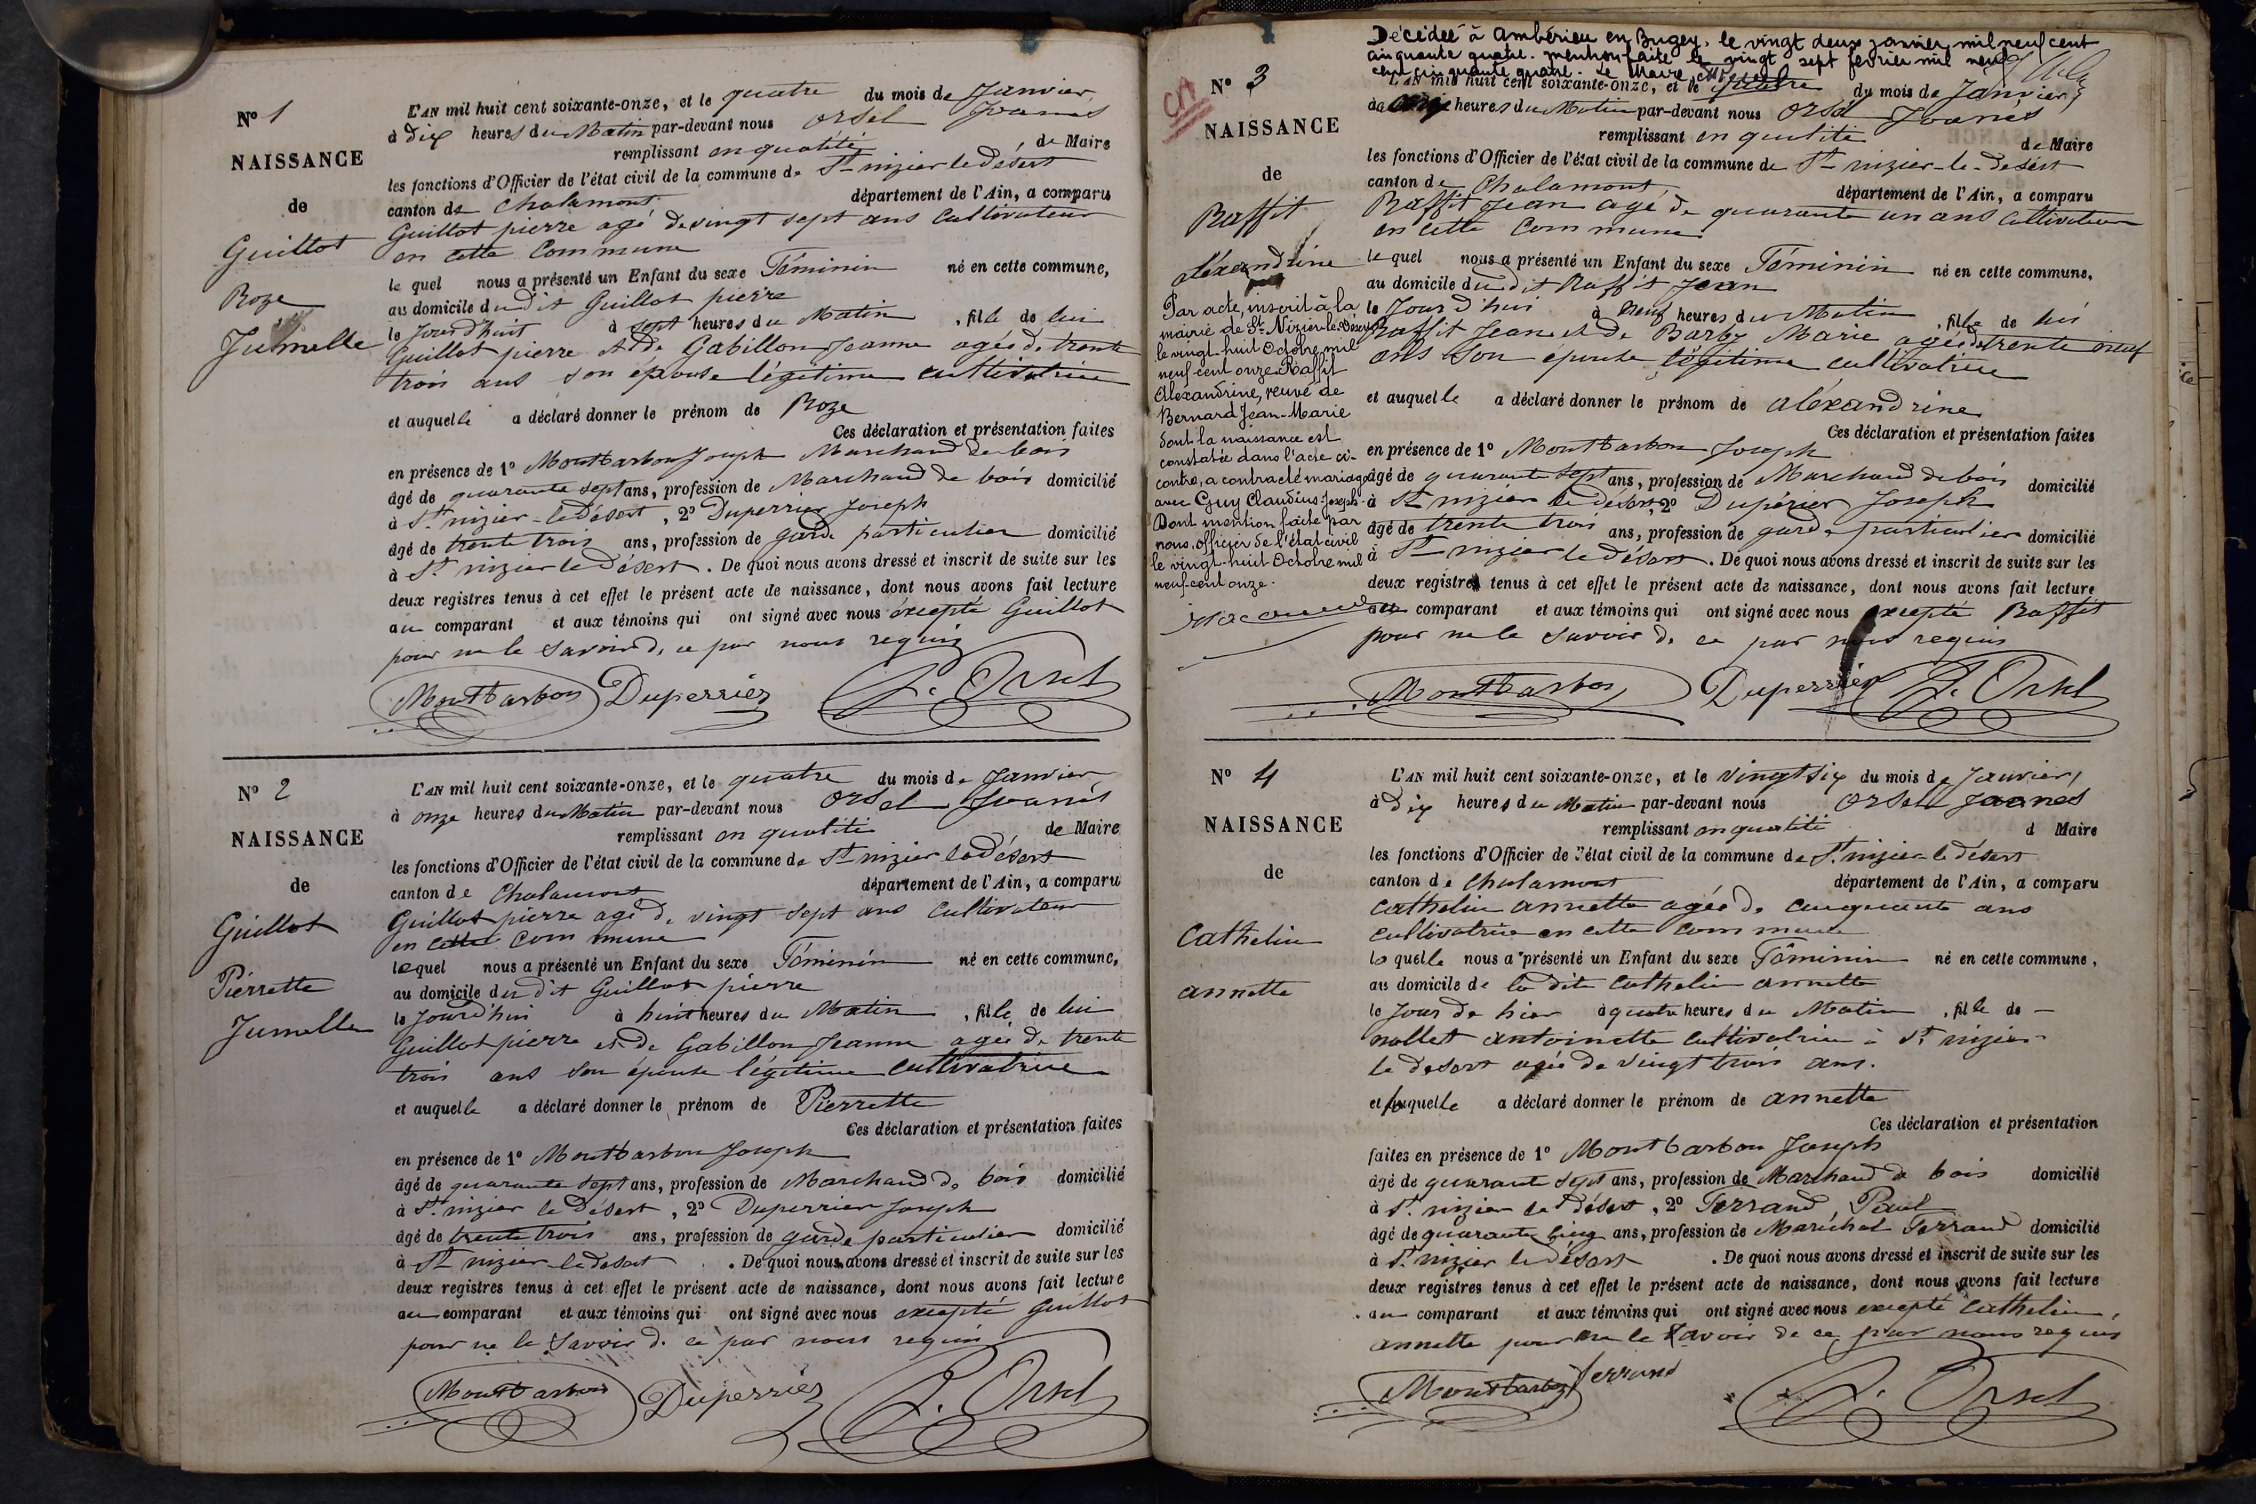 N° 1
NAISSANCE
de
Guillot
Roze
Jumelle
L'AN mil huit cent soixante-onze, et le quatre du mois de Janvier
à dix heures du Matin par-devant nous Orsel Joanès
remplissant en qualité de Maire
les fonctions d'Officier de l'état civil de la commune de St nizier le Désert
canton de Chalamont département de l'Ain, a comparu
Guillot pierre agé de vingt sept ans Cultivateur
en cette Commune
le quel nous a présenté un Enfant du sexe Féminin né en cette commune,
au domicile du dit Guillot pierre
le Jourd'huit à sept heures du Matin , fille de lui
Guillot pierre et de Gabillon Jeanne agée de trente
trois ans son épouse légitime cultivatrice
et auquelle a déclaré donner le prénom de Roze
Ces déclaration et présentation faites
en présence de 1° Montbarbon Joseph Marchand de bois
âgé de quarante sept ans, profession de Marchand de bois domicilié
à St. nizier-le Désert, 2° Duperrier Joseph
âgé de trente trois ans, profession de garde particulier domicilié
à St nizier le Désert. De quoi nous avons dressé et inscrit de suite sur les
deux registres tenus à cet effet le présent acte de naissance, dont nous avons fait lecture
au comparant et aux témoins qui ont signé avec nous excepté Guillot
pour ne le savoir de ce par nous requis
Montbarbon Duperrier J. Orsel
N° 2
NAISSANCE
de
Guillot
Pierrette
Jumelle
L'AN mil huit cent soixante-onze, et le quatre du mois de Janvier
à onze heures du Matin par-devant nous Orsel Joanès
remplissant en qualité de Maire
les fonctions d'Officier de l'état civil de la commune de St nizier le Désert
canton de Chalamont département de l'Ain, a comparu
Guillot pierre agé de vingt sept ans Cultivateur
en cette Commune
lequel nous a présenté un Enfant du sexe Féminin né en cette commune,
au domicile du dit Guillot pierre
le Jourd'hui à huit heures du Matin , fille de lui
Guillot pierre et de Gabillon Jeanne agée de trente
trois ans son épouse légitime cultivatrice
et auquelle a déclaré donner le prénom de Pierrette
Ces déclaration et présentation faites
en présence de 1° Montbarbon Joseph
âgé de quarante sept ans, profession de Marchand de bois domicilié
à St. nizier le Désert, 2° Duperrier Joseph
âgé de trente trois ans, profession de garde particulier domicilié
à St nizier le desert . De quoi nous avons dressé et inscrit de suite sur les
deux registres tenus à cet effet le présent acte de naissance, dont nous avons fait lecture
au comparant et aux témoins qui ont signé avec nous excepté Guillot
pour ne le Savoir de ce par nous requis
Montbarbon Duperrier J. Orsel
Décédée à Ambérieu en Bugey, le vingt deux janvier mil neuf cent
cinquante quatre. mention faite le vingt sept février mil neuf
cent cinquante quatre. Le Maire,
N° 3
NAISSANCE
de
Raffit
aléxandrine
Par acte, inscrit à la
mairie de St-Nizier-le-Désert
le vingt-huit Octobre mil
neuf cent onze Raffit
Aléxandrine, veuve de
Bernard Jean-Marie
dont la naissance est
constatée dans l'acte ci-
contre, a contracté mariage
avec Guy Claudius-Joseph.
Dont mention faite par
nous, officier de l'état civil
le vingt-huit Octobre mil
neuf-cent onze.
L'AN mil huit cent soixante-onze, et le quatre du mois de Janvier,
à onze heures du Matin par-devant nous Orsel Joanès
remplissant en qualité de Maire
les fonctions d'Officier de l'état civil de la commune de St nizier-le-Desert
canton de Chalamont département de l'Ain, a comparu
Raffit Jean agé de quarante un ans Cultivateur
en cette Commune
le quel nous a présenté un Enfant du sexe Féminin né en cette commune,
au domicile du dit Raffit Jean
le Jourd'hui à neuf heures du Matin , fille de lui
Raffit Jean et de Barby Marie agée de trente neuf
ans son épouse légitime cultivatrice
et auquelle a déclaré donner le prénom de aléxandrine
Ces déclaration et présentation faites
en présence de 1° Montbarbon Joseph
âgé de quarante sept ans, profession de Marchand de bois domicilié
à St nizier le désert, 2° Dupérier Joseph
âgé de trente trois ans, profession de garde particulier domicilié
à St nizier le désert. De quoi nous avons dressé et inscrit de suite sur les
deux registres tenus à cet effet le présent acte de naissance, dont nous avons fait lecture
au comparant et aux témoins qui ont signé avec nous excepté Raffit
pour ne le savoir de ce par nous requis
Montbarbon Duperrier J. Orsel
N° 4
NAISSANCE
de
Cathelin
annette
L'AN mil huit cent soixante-onze, et le vingt six du mois de Janvier,
à dix heures du Matin par-devant nous Orsel Joanès
remplissant en qualité d Maire
les fonctions d'Officier de l'état civil de la commune de St. nizier-le désert
canton de Chalamont département de l'Ain, a comparu
Cathelin annette agée de cinquante ans
cultivatrice en cette commune
laquelle nous a présenté un Enfant du sexe Féminin né en cette commune,
au domicile de la dite Cathelin annette
le Jour de hier à quatre heures du Matin , fille de —
nallet antoinette cultivatrice à St nizier
le desert agée de vingt trois ans.
et auquelle a déclaré donner le prénom de annette
Ces déclaration et présentation
faites en présence de 1° Montbarbon Joseph
âgé de quarante sept ans, profession de Marchand de bois domicilié
à St. nizier le Désert, 2° Ferrand Paul
âgé de quarante cinq ans, profession de Maréchal Ferrand domicilié
à St. nizier le désert . De quoi nous avons dressé et inscrit de suite sur les
deux registres tenus à cet effet le présent acte de naissance, dont nous avons fait lecture
au comparant et aux témoins qui ont signé avec nous excepté Cathelin
annette pour ne le Savoir de ce par nous requis
Montbarbon Ferrand J. Orsel